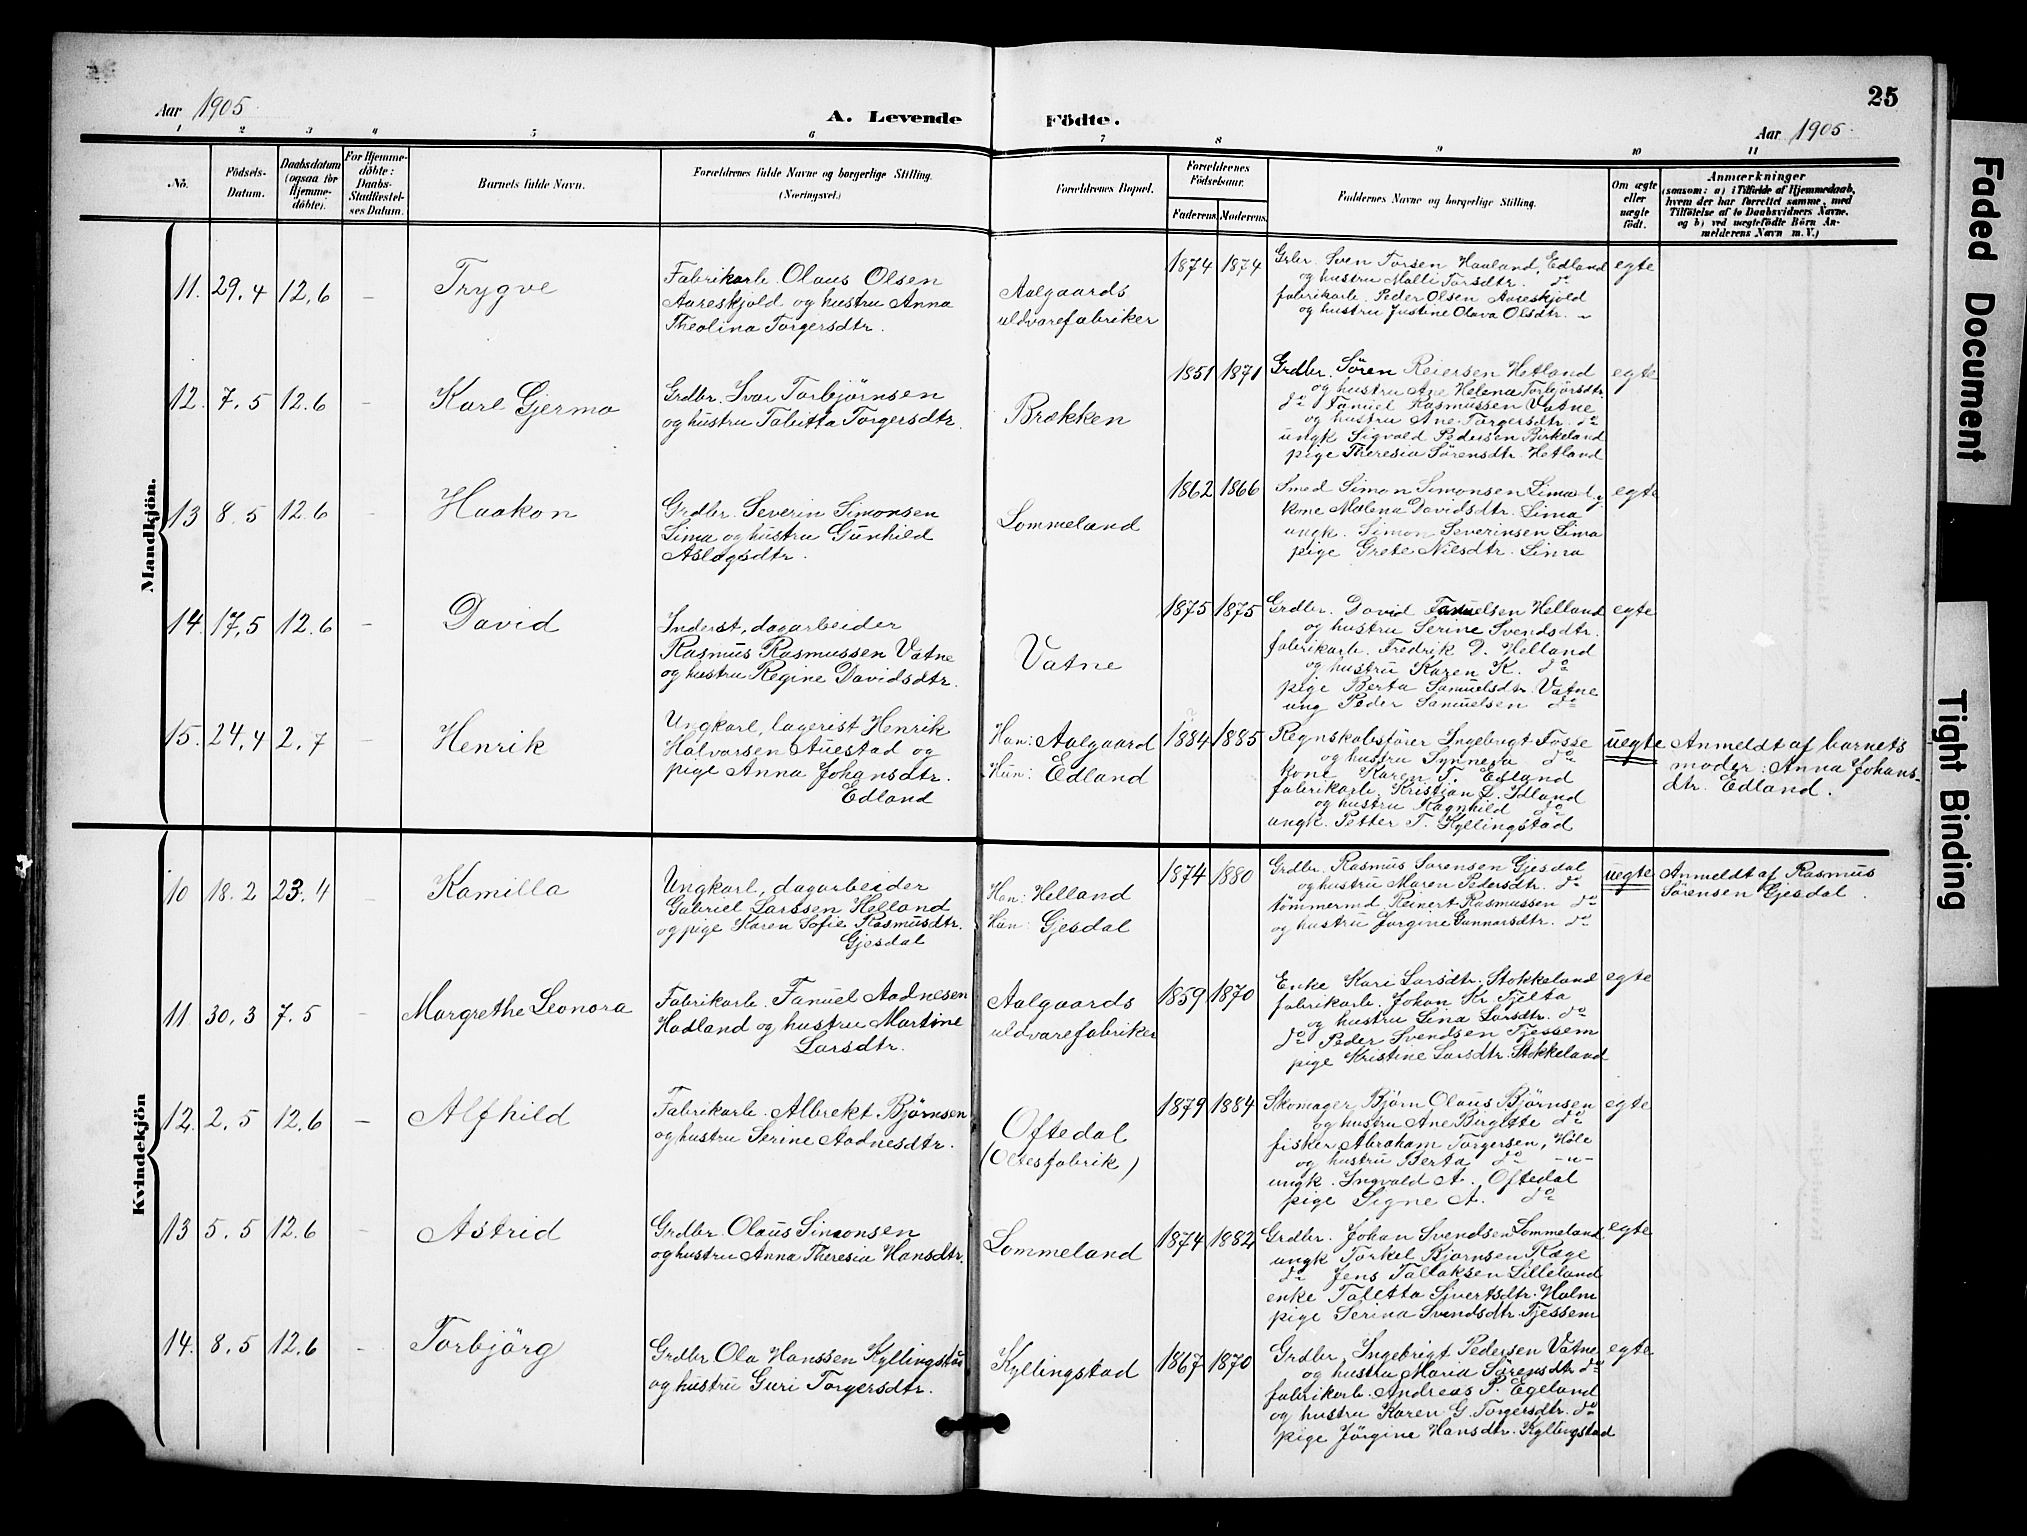 25
Aar 1905
A. Levende Födte.
Aar 1905.
1 2 3 4 5 6 7 8 9 10 11
No.
Födsels-
Datum.
Daabsdatum
(ogsaa for
Hjemme-
döbte).
For Hjemme-
döbte:
Daabs-
Stadfæstel-
ses Datum.
Barnets fulde Navn.
Forældrenes fulde Navne og borgerlige Stilling.
(Næringsvei.)
Forældrenes Bopæl.
Forældrenes
Födselsaar.
Faderens. Moderens.
Faddernes Navne og borgerlige Stilling.
Om ægte
eller
uægte
födt.
Anmærkninger
(saasom: a) i Tilfælde af Hjemmedaab,
hvem der har forrettet samme, med
Tilföielse af to Daabsvidners Navne.
og b) ved uægtefödte Börn An-
melderens Navn m. V.)
Mandkjön.
11. 29.4 12.6 –
Trygve
Fabrikarb. Olaus Olsen
Aareskjold og hustru Anna
Theolina Torgersdtr.
Aalgaards
uldvarefabriker
1874 1874
Grbr. Sven Torsen Haaland, Edland
og hustru Malli Torsdtr. do
fabrikarb. Peder Olsen Aareskjold
og hustru Justine Olava Olsdtr. "
egte
12. 7.5 12.6 –
Karl Gjermo
Grdbr. Ivar Torbjørnsen
og hustru Talitta Torgersdtr.
Brækken
1851 1871
Grdbr. Søren Reiersen Hetland
og hustru Ane Helena Torbjørsdtr.
do Fanuel Rasmussen Vatne
og hustru Ane Torgersdtr. do
ungk. Sigvald Pedersen Birkeland
pige Theresia Sørensdtr. Hetland
egte
13 8.5 12.6 –
Haakon
Grdbr. Severin Simonsen
Lima og hustru Gunhild
Aslagsdtr.
Lommeland
1862 1866
Smed Simon Simonsen Lima
kone Malena Davidsdtr. Lima
ungk. Simon Severinsen Lima
pige Grete Nilsdtr. Lima
egte
14. 17.5 12.6 –
David
Inderst, dagarbeider
Rasmus Rasmussen Vatne
og hustru Regine Davidsdtr.
Vatne
1875 1875
Grdbr. David Fanuelsen Helland
og hustru Serine Svendsdtr.
fabrikarb. Fredrik D. Helland
og hustru Karen K. do
pige Berta Samuelsdtr. Vatne
ung Peder Samuelsen do
egte
15. 24.4 2.7 –
Henrik
Ungkarl, lagerist Henrik
Halvorsen Auestad og
pige Anna Johansdtr.
Edland
Han: Aalgaard
Hun: Edland
1884 1885
Regnskabsfører Ingebrigt Fosse
og hustru Synneva do
kone Karen T. Edland
fabrikarb. Kristian L. Idland
og hustru Magnhild do
ungk. Petter T. Kyllingstad
uegte
Anmeldt af barnets
moder: Anna Johans-
dtr. Edland.
Kvindekjön
10 18.2 23.4 –
Kamilla
Ungkarl, dagarbeider
Gabriel Larssen Helland
og pige Karen Sofie Rasmusdtr.
Gjesdal
Han: Helland
Hun: Gjesdal
1874 1880
Grdbr. Rasmus Sørensen Gjesdal
og hustru Maren Pedersdtr. do
tømmermd. Reinert Rasmussen do
og hustru Jørgine Gunnarsdtr. do
uegte
Anmeldt af Rasmus
Sørensen Gjesdal.
11 30.3 7.5 –
Margrethe Leonora
Fabrikarb. Fanuel Aadnesen
Hadland og hustru Martine
Larsdtr.
Aalgaards
uldvarefabriker
1859 1870
Enke Kari Larsdtr. Stokkeland
fabrikarb. Johan Kr. Tjelta
og hustru Sina Larsdtr. do
do Peder Svendsen Tjessem
pige Kristine Larsdtr. Stokkeland
egte
12. 2.5 12.6 –
Alfhild
Fabrikarb. Albrekt Bjørnsen
og hustru Serine Aadnesdtr.
Oftedal
(Oltesfabrik)
1879 1884
Skomager Bjørn Olaus Bjørnsen
og hustru Ane Birgitte do
fisker Abraham Torgersen, Høle
og hustru Berta do –"–
ungk. Ingvald A. Oftedal
pige Signe A. do
egte
13 5.5 12.6 –
Astrid
Grdbr. Olaus Simonsen
og hustru Anna Theresia Hansdtr.
Lommeland
1874 1882
Grdbr. Johan Svendsen Lommeland
ungk Torkel Bjørnsen Ræge
do Jens Tallaksen Lilleland
enke Taletta Sivertsdtr. Holm
pige Serina Svendsdtr. Tjessem
egte
14. 8.5 12.6 –
Torbjörg
Grdbr. Ola Hanssen Kyllingstad
og hustru Guri Torgersdtr.
Kyllingstad
1867 1870
Grdbr. Ingebrigt Pedersen Vatne
og hustru Maria Sörensdtr do
fabrikarb. Andreas P. Egeland
og hustru Karen G. Torgersdtr. do
pige Jørgine Hansdtr. Kyllingstad
egte
Faded Document
Tight Binding